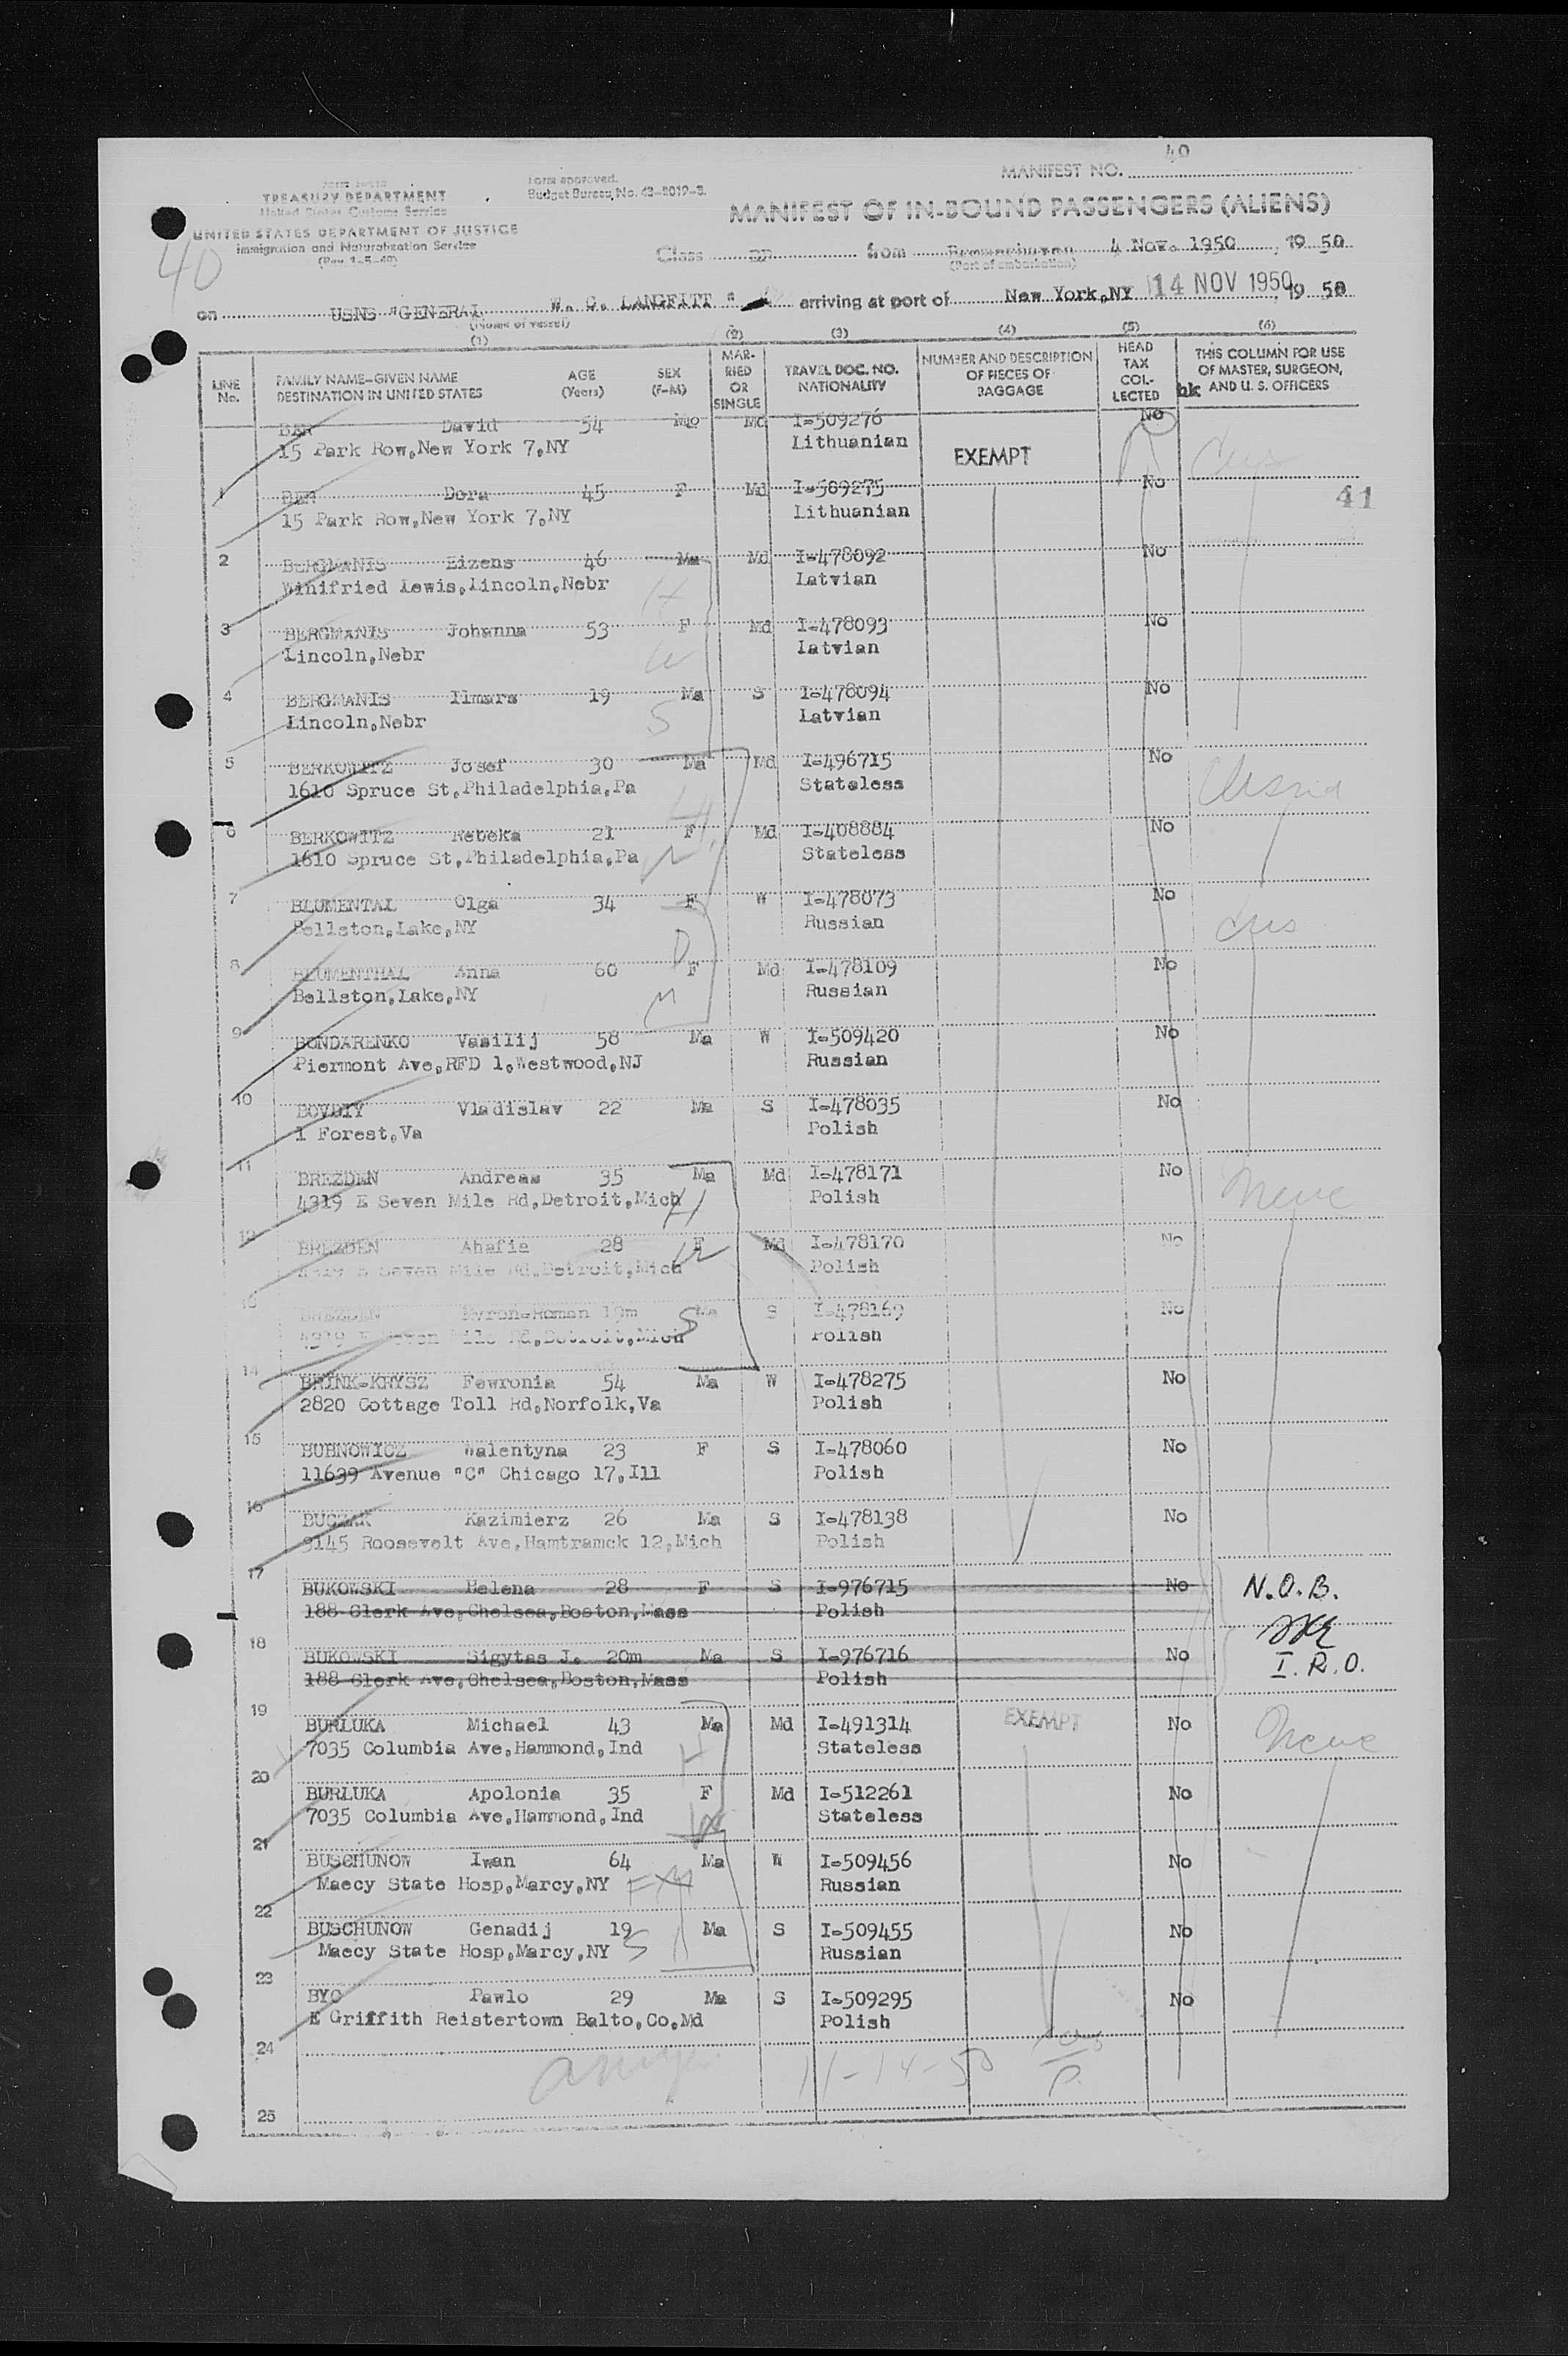 40
MANIFEST NO.
TREASURY DEPARTMENT
United States Customs Service
UNITED STATES DEPARTMENT OF JUSTICE
Immigration and Naturalization Service
(Rev. 1-5-49)
Form approved.
Budget Bureau No. 43-R019-3.
40
MANIFEST OF IN-BOUND PASSENGERS (ALIENS)
Class DP from Bremerhaven 4 Nov. 1950, 19 50
(Port of embarkation)
on USNS "GENERAL W. C. LANGFITT" arriving at port of New York,NY 14 NOV 1950, 19 50
(Name of vessel)
(1) (2) (3) (4) (5) (6)
LINE No. FAMILY NAME—GIVEN NAME DESTINATION IN UNITED STATES AGE (Years) SEX (F-M) MARRIED OR SINGLE TRAVEL DOC. NO. NATIONALITY NUMBER AND DESCRIPTION OF PIECES OF BAGGAGE HEAD TAX COLLECTED THIS COLUMN FOR USE OF MASTER, SURGEON, AND U. S. OFFICERS
BER David 54 Ma Md I-509276 No
15 Park Row,New York 7,NY Lithuanian EXEMPT
1 BER Dora 45 F Md I-509275 No
15 Park Row,New York 7,NY Lithuanian 41
2 BERGMANIS Eizens 46 Ma Md I-478092 No
Winifried Lewis,Lincoln,Nebr Latvian H
3 BERGMANIS Johanna 53 F Md I-478093 No
Lincoln,Nebr Latvian W
4 BERGMANIS Ilmars 19 Ma S I-478094 No
Lincoln,Nebr Latvian S
5 BERKOWITZ Josef 30 Ma Md I-496715 No
1610 Spruce St,Philadelphia,Pa Stateless H
6 BERKOWITZ Rebeka 21 F Md I-408884 No
1610 Spruce St,Philadelphia,Pa Stateless W
7 BLUMENTAL Olga 34 F W I-478073 No
Bellston,Lake,NY Russian D
8 BLUMENTHAL Anna 60 F Md I-478109 No
Bellston,Lake,NY Russian M
9 BONDARENKO Vasilij 58 Ma W I-509420 No
Piermont Ave,RFD 1,Westwood,NJ Russian
10 BOVDIY Vladislav 22 Ma S I-478035 No
1 Forest,Va Polish
11 BREZDEN Andreas 35 Ma Md I-478171 No
4319 E Seven Mile Rd,Detroit,Mich H Polish
12 BREZDEN Ahafia 28 F Md I-478170 No
4319 E Seven Mile Rd,Detroit,Mich W Polish
13 BREZDEN Myron-Roman 19m Ma S I-478169 No
4319 E Seven Mile Rd,Detroit,Mich S Polish
14 BRINK-KRYSZ Fewronia 54 Ma W I-478275 No
2820 Cottage Toll Rd,Norfolk,Va Polish
15 BUBNOWICZ Walentyna 23 F S I-478060 No
11639 Avenue "C" Chicago 17,Ill Polish
16 BUCZAK Kazimierz 26 Ma S I-478138 No
9145 Roosevelt Ave,Hamtramck 12,Mich Polish
17 BUKOWSKI Helena 28 F S I-976715 No N.O.B.
188 Clerk Ave,Chelsea,Boston,Mass Polish
18 BUKOWSKI Sigytas J. 20m Ma S I-976716 No I.R.O.
188 Clerk Ave,Chelsea,Boston,Mass Polish
19 BURLUKA Michael 43 Ma Md I-491314 EXEMPT No
7035 Columbia Ave,Hammond,Ind H Stateless
20 BURLUKA Apolonia 35 F Md I-512261 No
7035 Columbia Ave,Hammond,Ind W Stateless
21 BUSCHUNOW Iwan 64 Ma W I-509456 No
Maecy State Hosp,Marcy,NY Russian
22 BUSCHUNOW Genadij 19 Ma S I-509455 No
Maecy State Hosp,Marcy,NY S Russian
23 BYC Pawlo 29 Ma S I-509295 No
E Griffith Reistertown Balto,Co,Md Polish
24
11-14-50
25